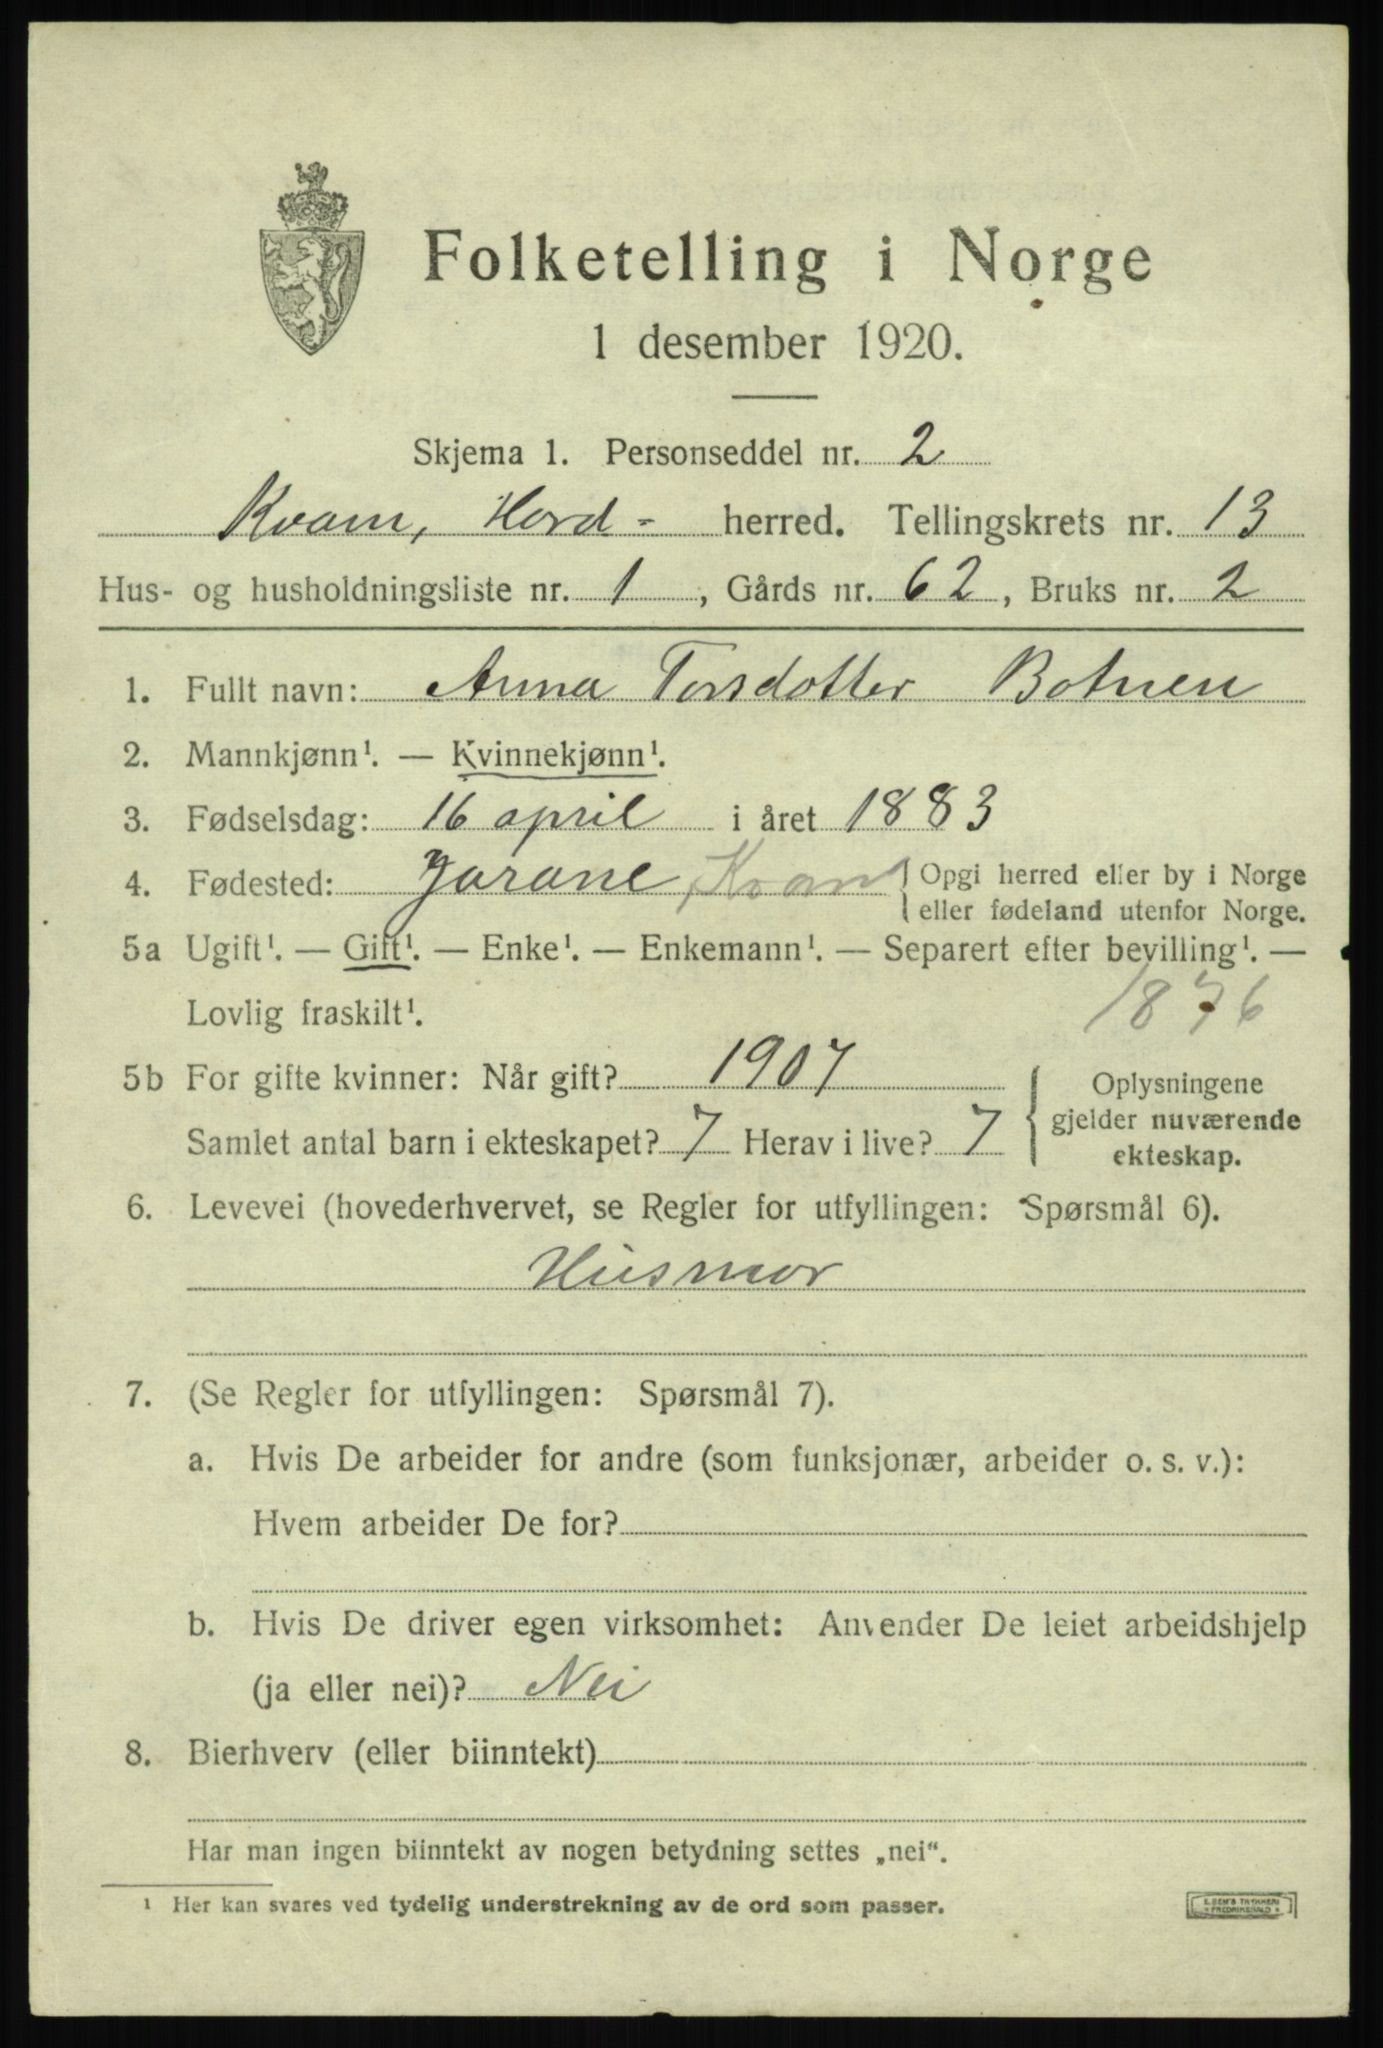 Folketelling i Norge
1 desember 1920.
Skjema 1. Personseddel nr. 2
Kvam, Hord- herred. Tellingskrets nr. 13
Hus- og husholdningsliste nr. 1, Gårds nr. 62, Bruks nr. 2
1. Fullt navn: Anna Torsdotter Botnen
2. Mannkjønn¹. — Kvinnekjønn¹.
3. Fødselsdag: 16 april i året 1883
4. Fødested: Jarane, Kvam { Opgi herred eller by i Norge
eller fødeland utenfor Norge.
5a Ugift¹. — Gift¹. — Enke¹. — Enkemann¹. — Separert efter bevilling¹. —
Lovlig fraskilt¹. 1876
5b For gifte kvinner: Når gift? 1907
Samlet antal barn i ekteskapet? 7 Herav i live? 7
{ Oplysningene
gjelder nuværende
ekteskap.
6. Levevei (hovederhvervet, se Regler for utfyllingen: Spørsmål 6).
Husmor
7. (Se Regler for utfyllingen: Spørsmål 7).
a. Hvis De arbeider for andre (som funksjonær, arbeider o. s. v.):
Hvem arbeider De for?
b. Hvis De driver egen virksomhet: Anvender De leiet arbeidshjelp
(ja eller nei)? Nei
8. Bierhverv (eller biinntekt)
Har man ingen biinntekt av nogen betydning settes „nei“.
¹ Her kan svares ved tydelig understrekning av de ord som passer.